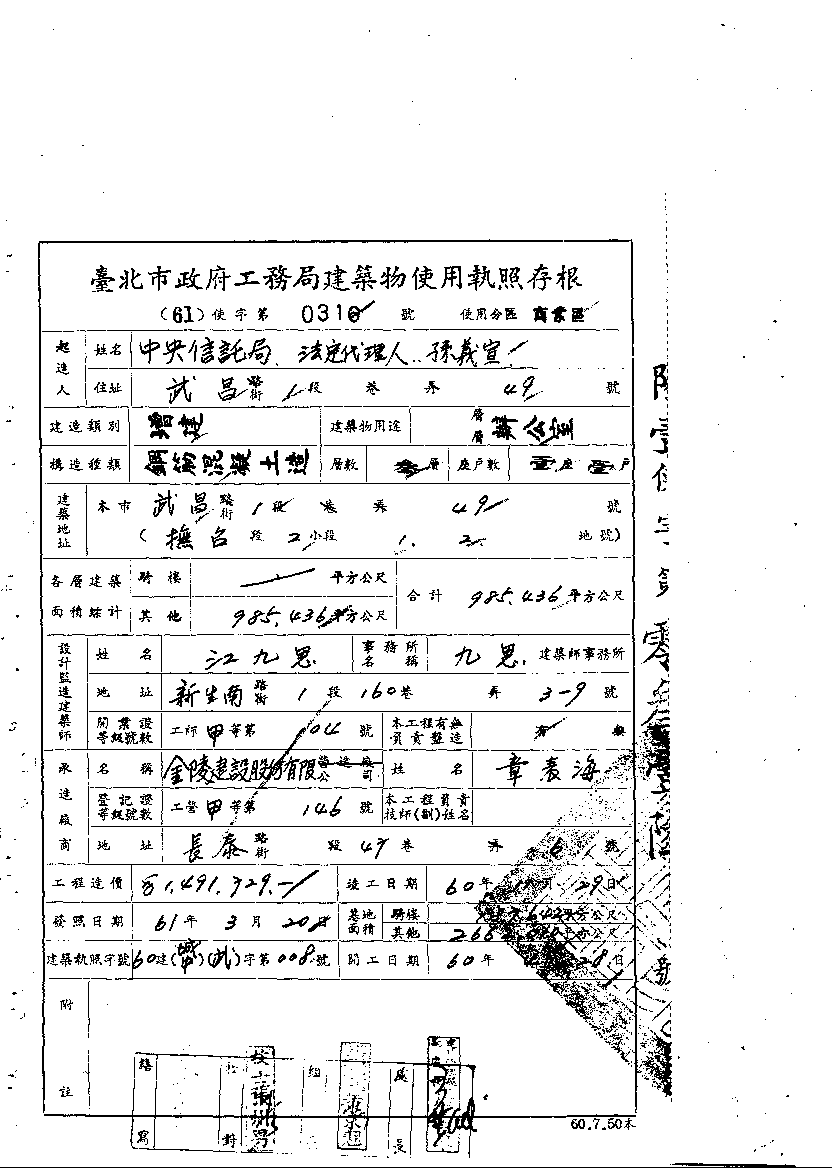 臺北市政府工務局建築物使用執照存根
(61) 使字第 0316 號 使用分區 商業區
起造人 姓名 中央信託局、法定代理人:孫義宣
住址 武昌 路街 1 段 巷 弄 49 號
建造類別 增建 建築物用途 層層 辦公室
構造種類 鋼筋混凝土造 層數 層 座戶數 壹座 壹戶
建築地址 本市 武昌 路街 1 段 巷 弄 49 號
( 撫台 段 2 小段 1. 2. 地號)
各層建築面積綜計 騎樓 平方公尺 合計 985.436 平方公尺
其他 985.436 平方公尺
設計監造建築師 姓名 江九思 事務所名稱 九思 建築師事務所
地址 新生南 路街 1 段 160 巷 弄 3-9 號
開業證等級號數 工師 甲 等第 104 號 本工程有無負責監造 有 無
承造廠商 名稱 金陵建設股份有限 營造廠公司 姓名 章表海
登記證等級號數 工營 甲 等第 146 號 本工程負責技師(副)姓名
地址 長泰 路街 段 47 巷 弄 6 號
工程造價 1,491,729.- 竣工日期 60 年 月 29 日
發照日期 61 年 3 月 20 日 基地面積 騎樓 平方公尺
其他 平方公尺
建築執照字號 60 建 (武) 字第 008 號 開工日期 60 年 28 日
附註
繕寫 校對 組 處長
60.7.50本